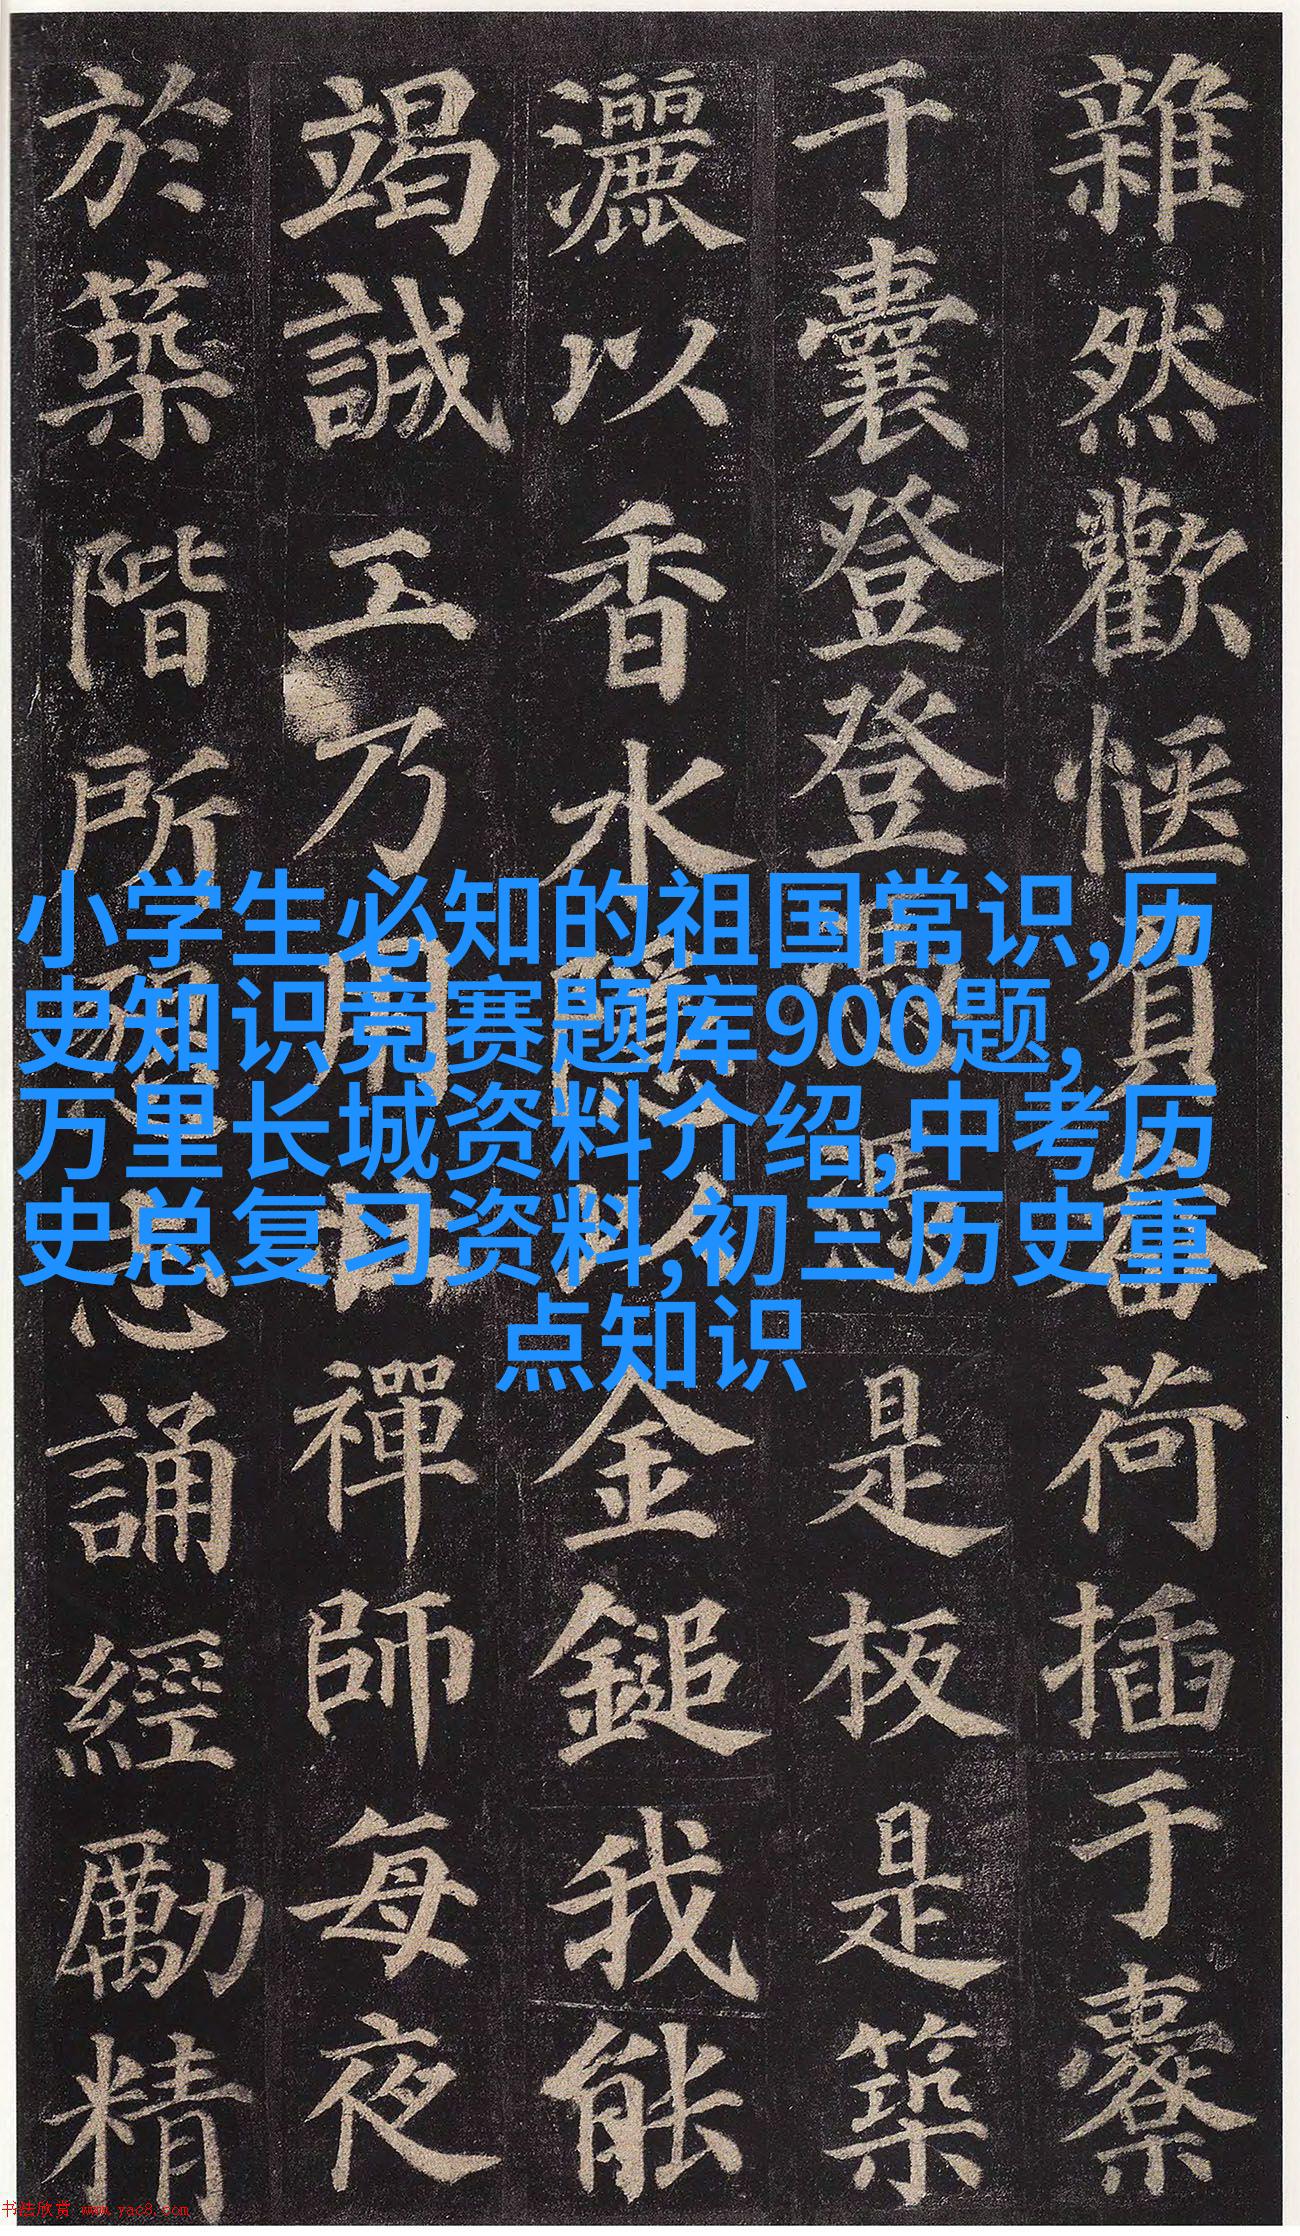 雜然歡愜負畚荷插于橐
于囊登登憑憑是板是築
灑以香水隱以金鎚我能
竭誠工乃用壯禪師每夜
於築階所懇志誦經勵精
小学生必知的祖国常识,历
史知识竞赛题库900题,
万里长城资料介绍,中考历
史总复习资料,初三历史重
点知识
书法欣赏 www.yac8.com